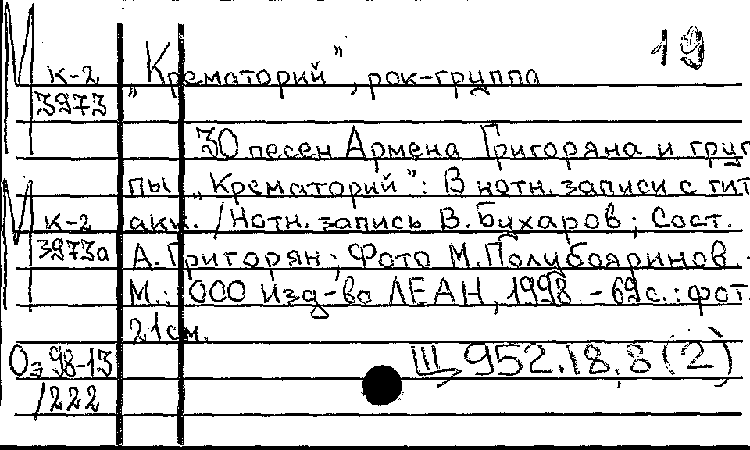 19
К-2 „Крематорий”, рок-группа
3973
30 песен Армена Григоряна и груп
пы „Крематорий”: В нотн. записи с гит
К-2 акк. / Нотн. запись В. Бухаров; Сост.
3973а А. Григорян; Фото М. Полубояринов.-
М.: ООО Изд-во ЛЕАН, 1998 - 69 с.: фот.
21 см.
Оз 98-13 Ш 952.18,8 (2)
/222